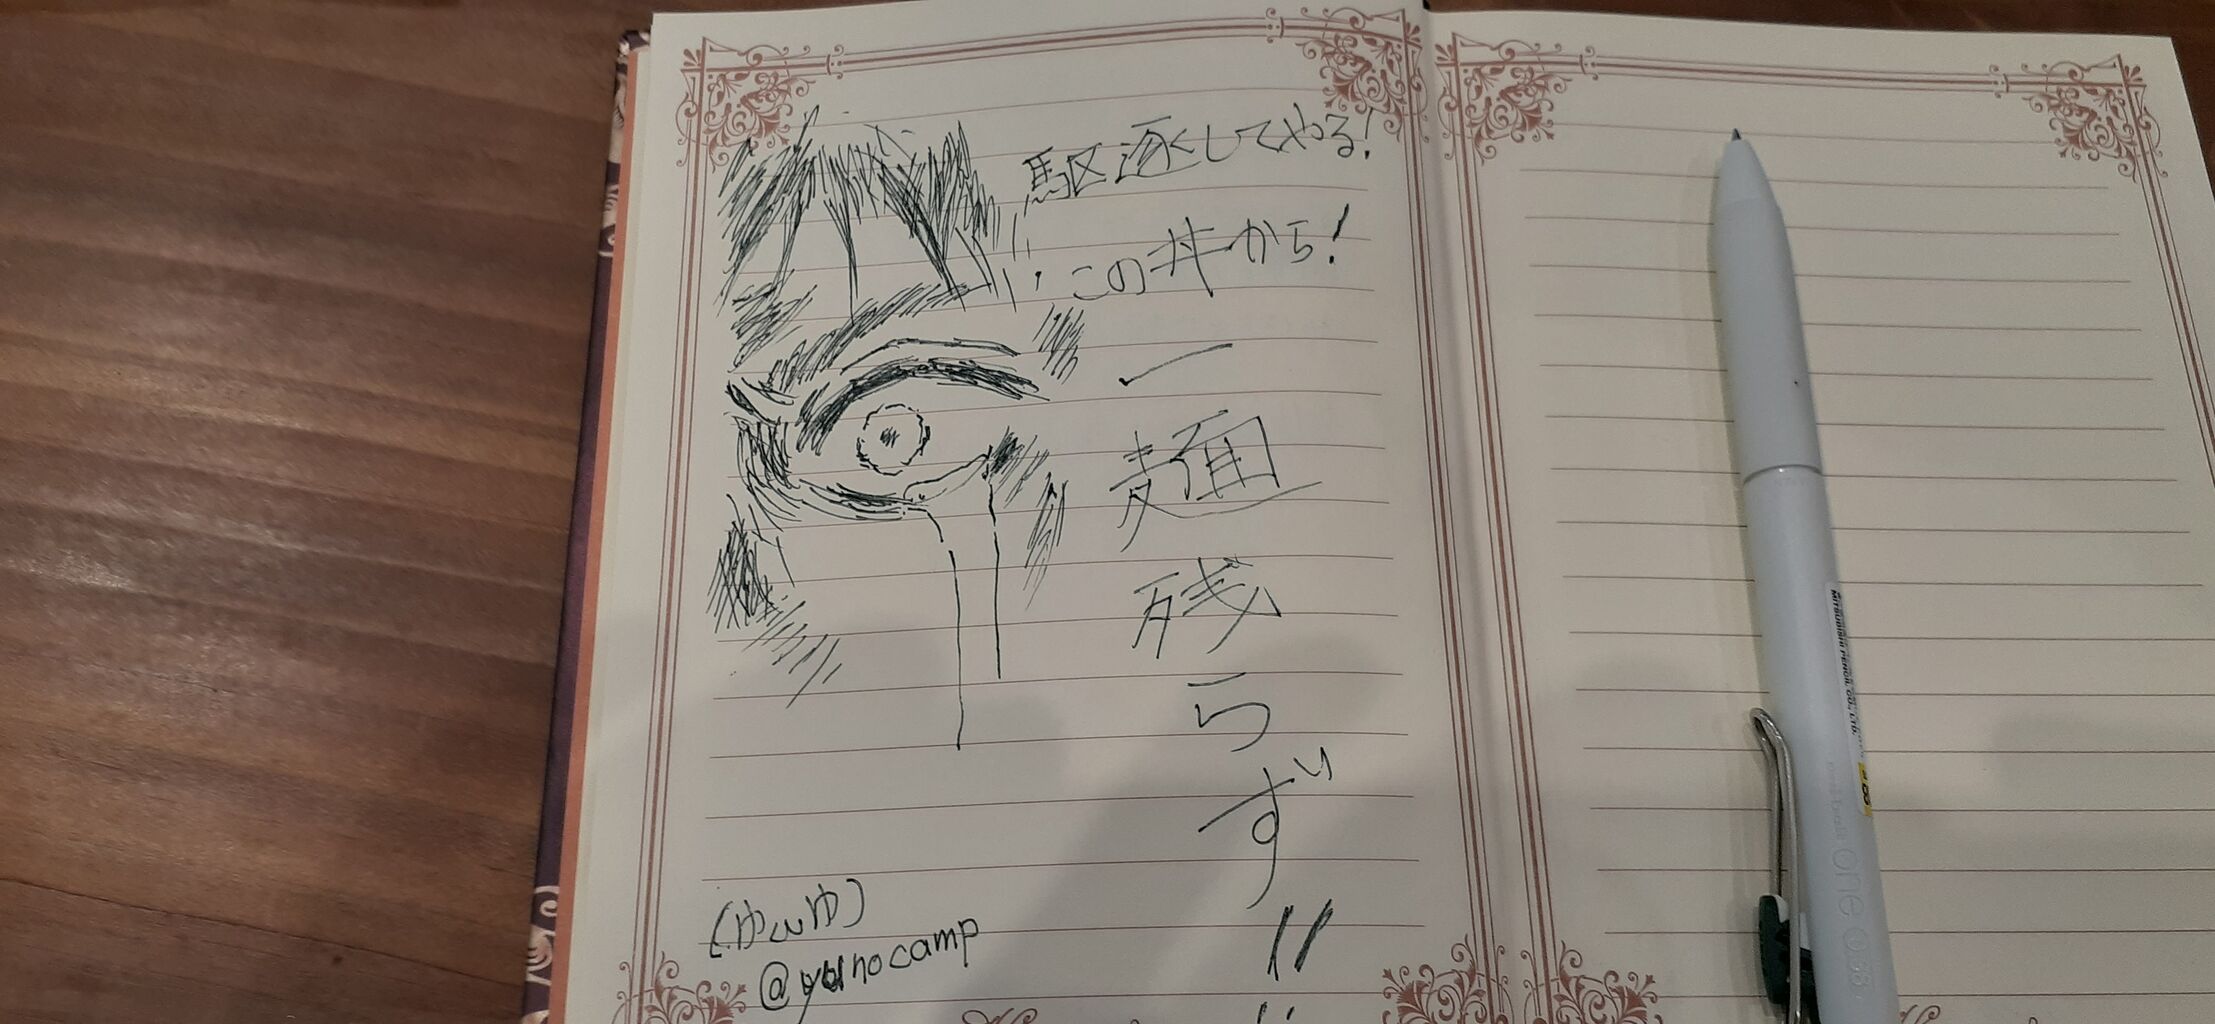 駆逐してやる!
この丼から!
一麺残らず!!
(ゆωゆ)
@yunocamp
MITSUBISHI PENCIL CO., LTD.
one